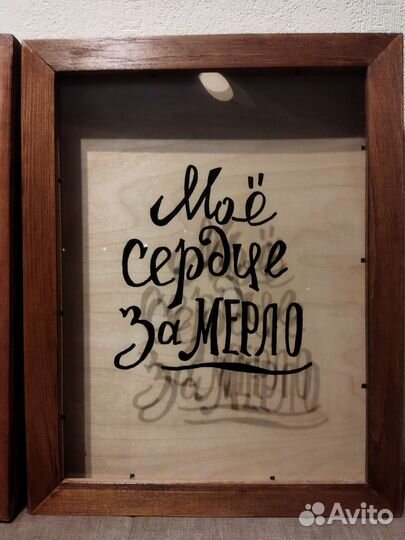 Моё
сердце
за МЕРЛО
Avito